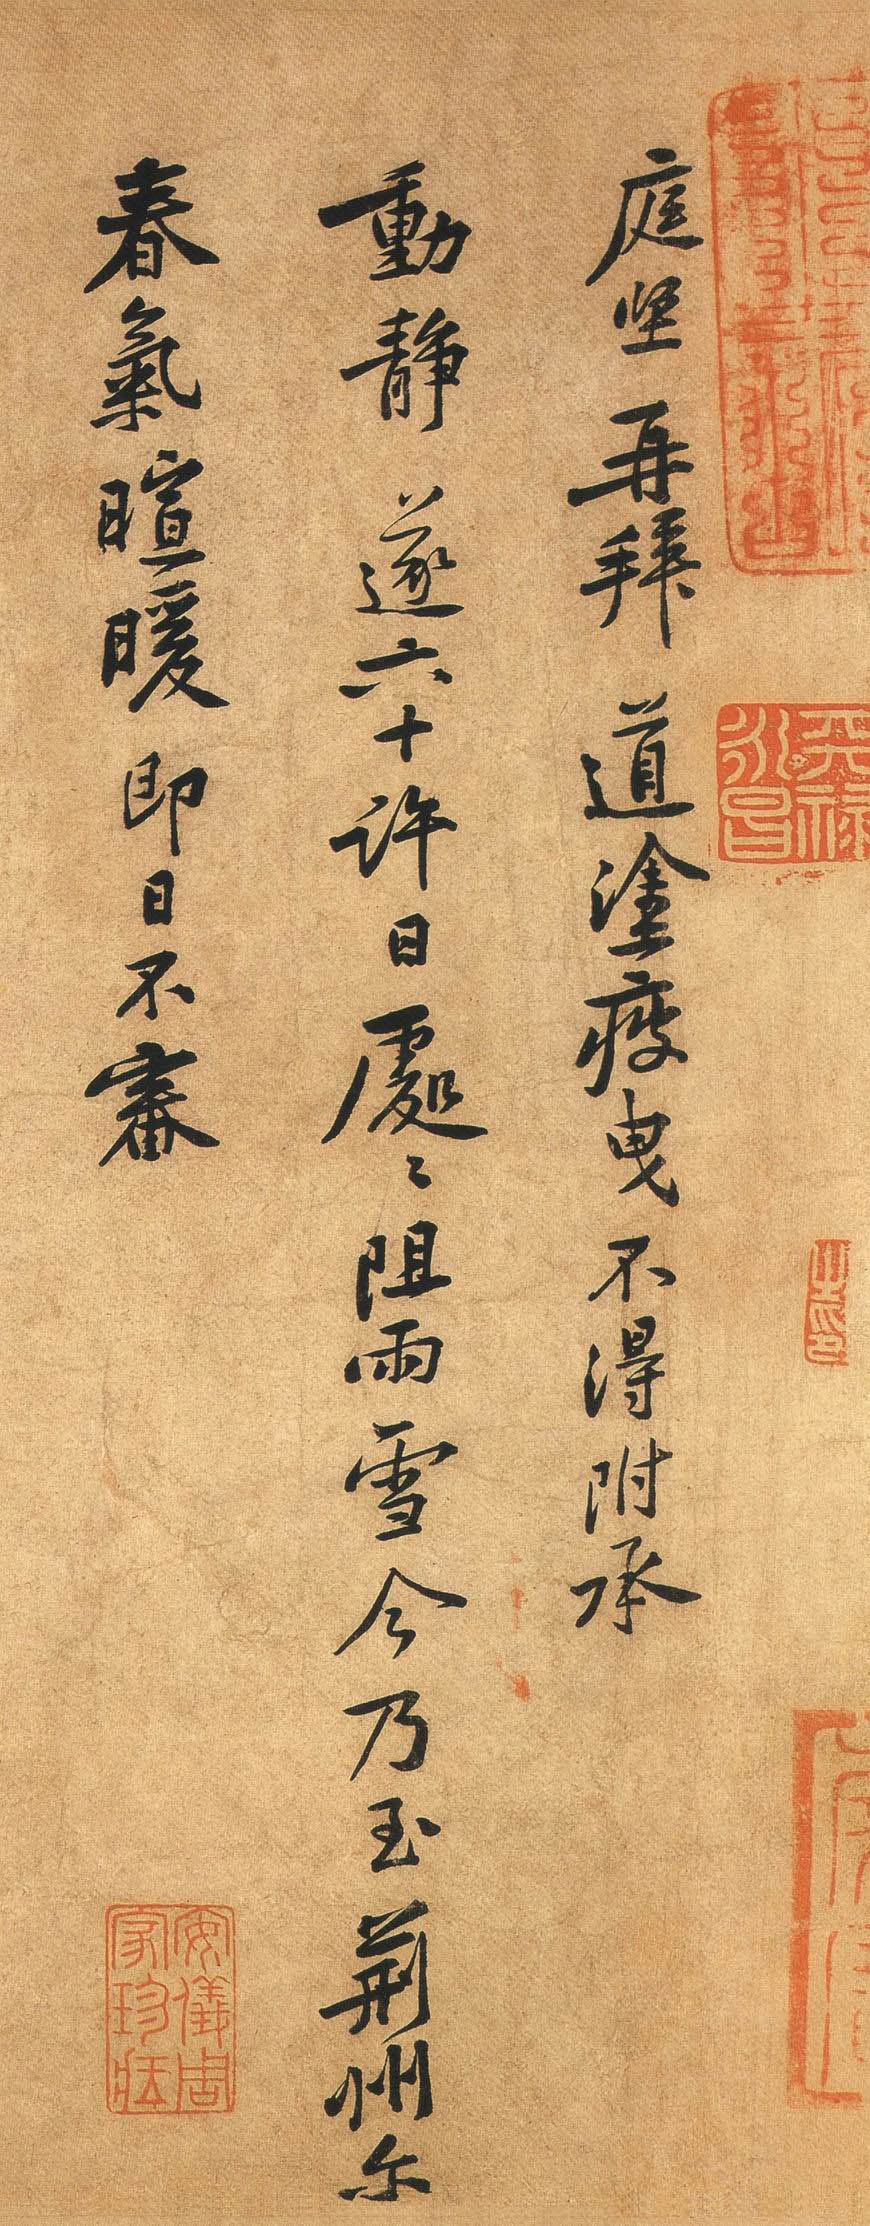 庭坚再拜道塗疲曳不得附承
動靜遂六十許日處〻阻雨雪今乃至荊州尔
春氣暄暖即日不審
天禄
永昌
安儀周
家珍藏